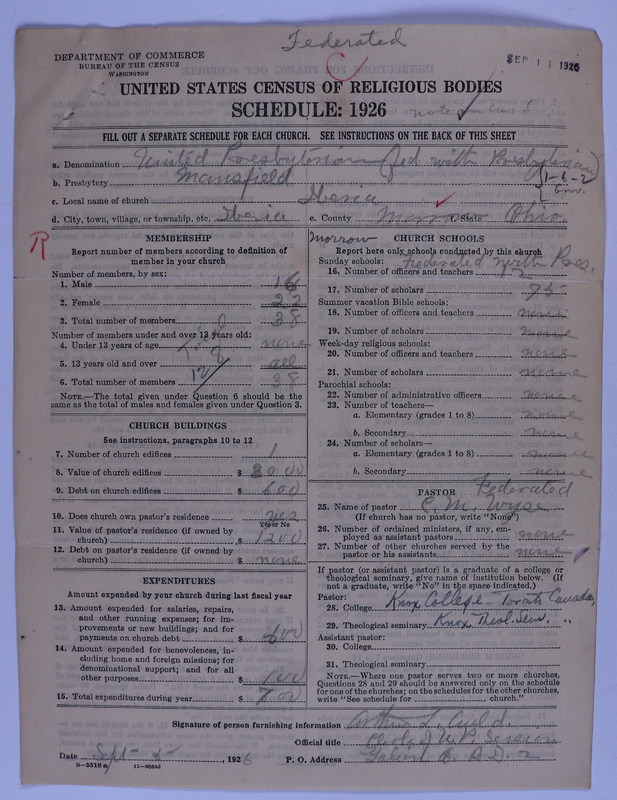 Federated
DEPARTMENT OF COMMERCE
BUREAU OF THE CENSUS
WASHINGTON
SEP 11 1926
UNITED STATES CENSUS OF RELIGIOUS BODIES
SCHEDULE: 1926
FILL OUT A SEPARATE SCHEDULE FOR EACH CHURCH. SEE INSTRUCTIONS ON THE BACK OF THIS SHEET
a. Denomination United Presbyterian (fed with Presbyterian)
b. Presbytery Mansfield
1-6-2
c. Local name of church Iberia
d. City, town, village, or township, etc. Iberia e. County Morrow f. State Ohio
R
Morrow
MEMBERSHIP
Report number of members according to definition of
member in your church
Number of members, by sex:
1. Male 16
2. Female 22
3. Total number of members 38
Number of members under and over 13 years old:
4. Under 13 years of age none
5. 13 years old and over all
6. Total number of members 38
NOTE.—The total given under Question 6 should be the
same as the total of males and females given under Question 3.
CHURCH BUILDINGS
See instructions, paragraphs 10 to 12
7. Number of church edifices 1
8. Value of church edifices $ 3000
9. Debt on church edifices $ 600
10. Does church own pastor's residence yes
Yes or No
11. Value of pastor's residence (if owned by
church) $ 1200
12. Debt on pastor's residence (if owned by
church) $ none
EXPENDITURES
Amount expended by your church during last fiscal year
13. Amount expended for salaries, repairs,
and other running expenses; for im-
provements or new buildings; and for
payments on church debt $ 600
14. Amount expended for benevolences, in-
cluding home and foreign missions; for
denominational support; and for all
other purposes $ 100
15. Total expenditures during year $ 700
CHURCH SCHOOLS
Report here only schools conducted by this church
Sunday schools: Federated with Pres.
16. Number of officers and teachers 12
17. Number of scholars 75
Summer vacation Bible schools:
18. Number of officers and teachers none
19. Number of scholars none
Week-day religious schools:
20. Number of officers and teachers none
21. Number of scholars none
Parochial schools:
22. Number of administrative officers none
23. Number of teachers—
a. Elementary (grades 1 to 8) none
b. Secondary none
24. Number of scholars—
a. Elementary (grades 1 to 8) none
b. Secondary none
PASTOR Federated
25. Name of pastor C. M. Wyse
(If church has no pastor, write "None")
26. Number of ordained ministers, if any, em-
ployed as assistant pastors none
27. Number of other churches served by the
pastor or his assistants none
If pastor (or assistant pastor) is a graduate of a college or
theological seminary, give name of institution below. (If
not a graduate, write "No" in the space indicated.)
Pastor:
28. College Knox College - Toronto Canada,
29. Theological seminary Knox Theol. Sem. " "
Assistant pastor:
30. College
31. Theological seminary
NOTE.—Where one pastor serves two or more churches,
Questions 28 and 29 should be answered only on the schedule
for one of the churches; on the schedules for the other churches,
write "See schedule for church."
Signature of person furnishing information Arthur L. Auld.
Official title Clerk of U.P. Session
Date Sept - 2 -, 1926 P. O. Address Galion O. R.D. 2
8—5518a 11—9056d